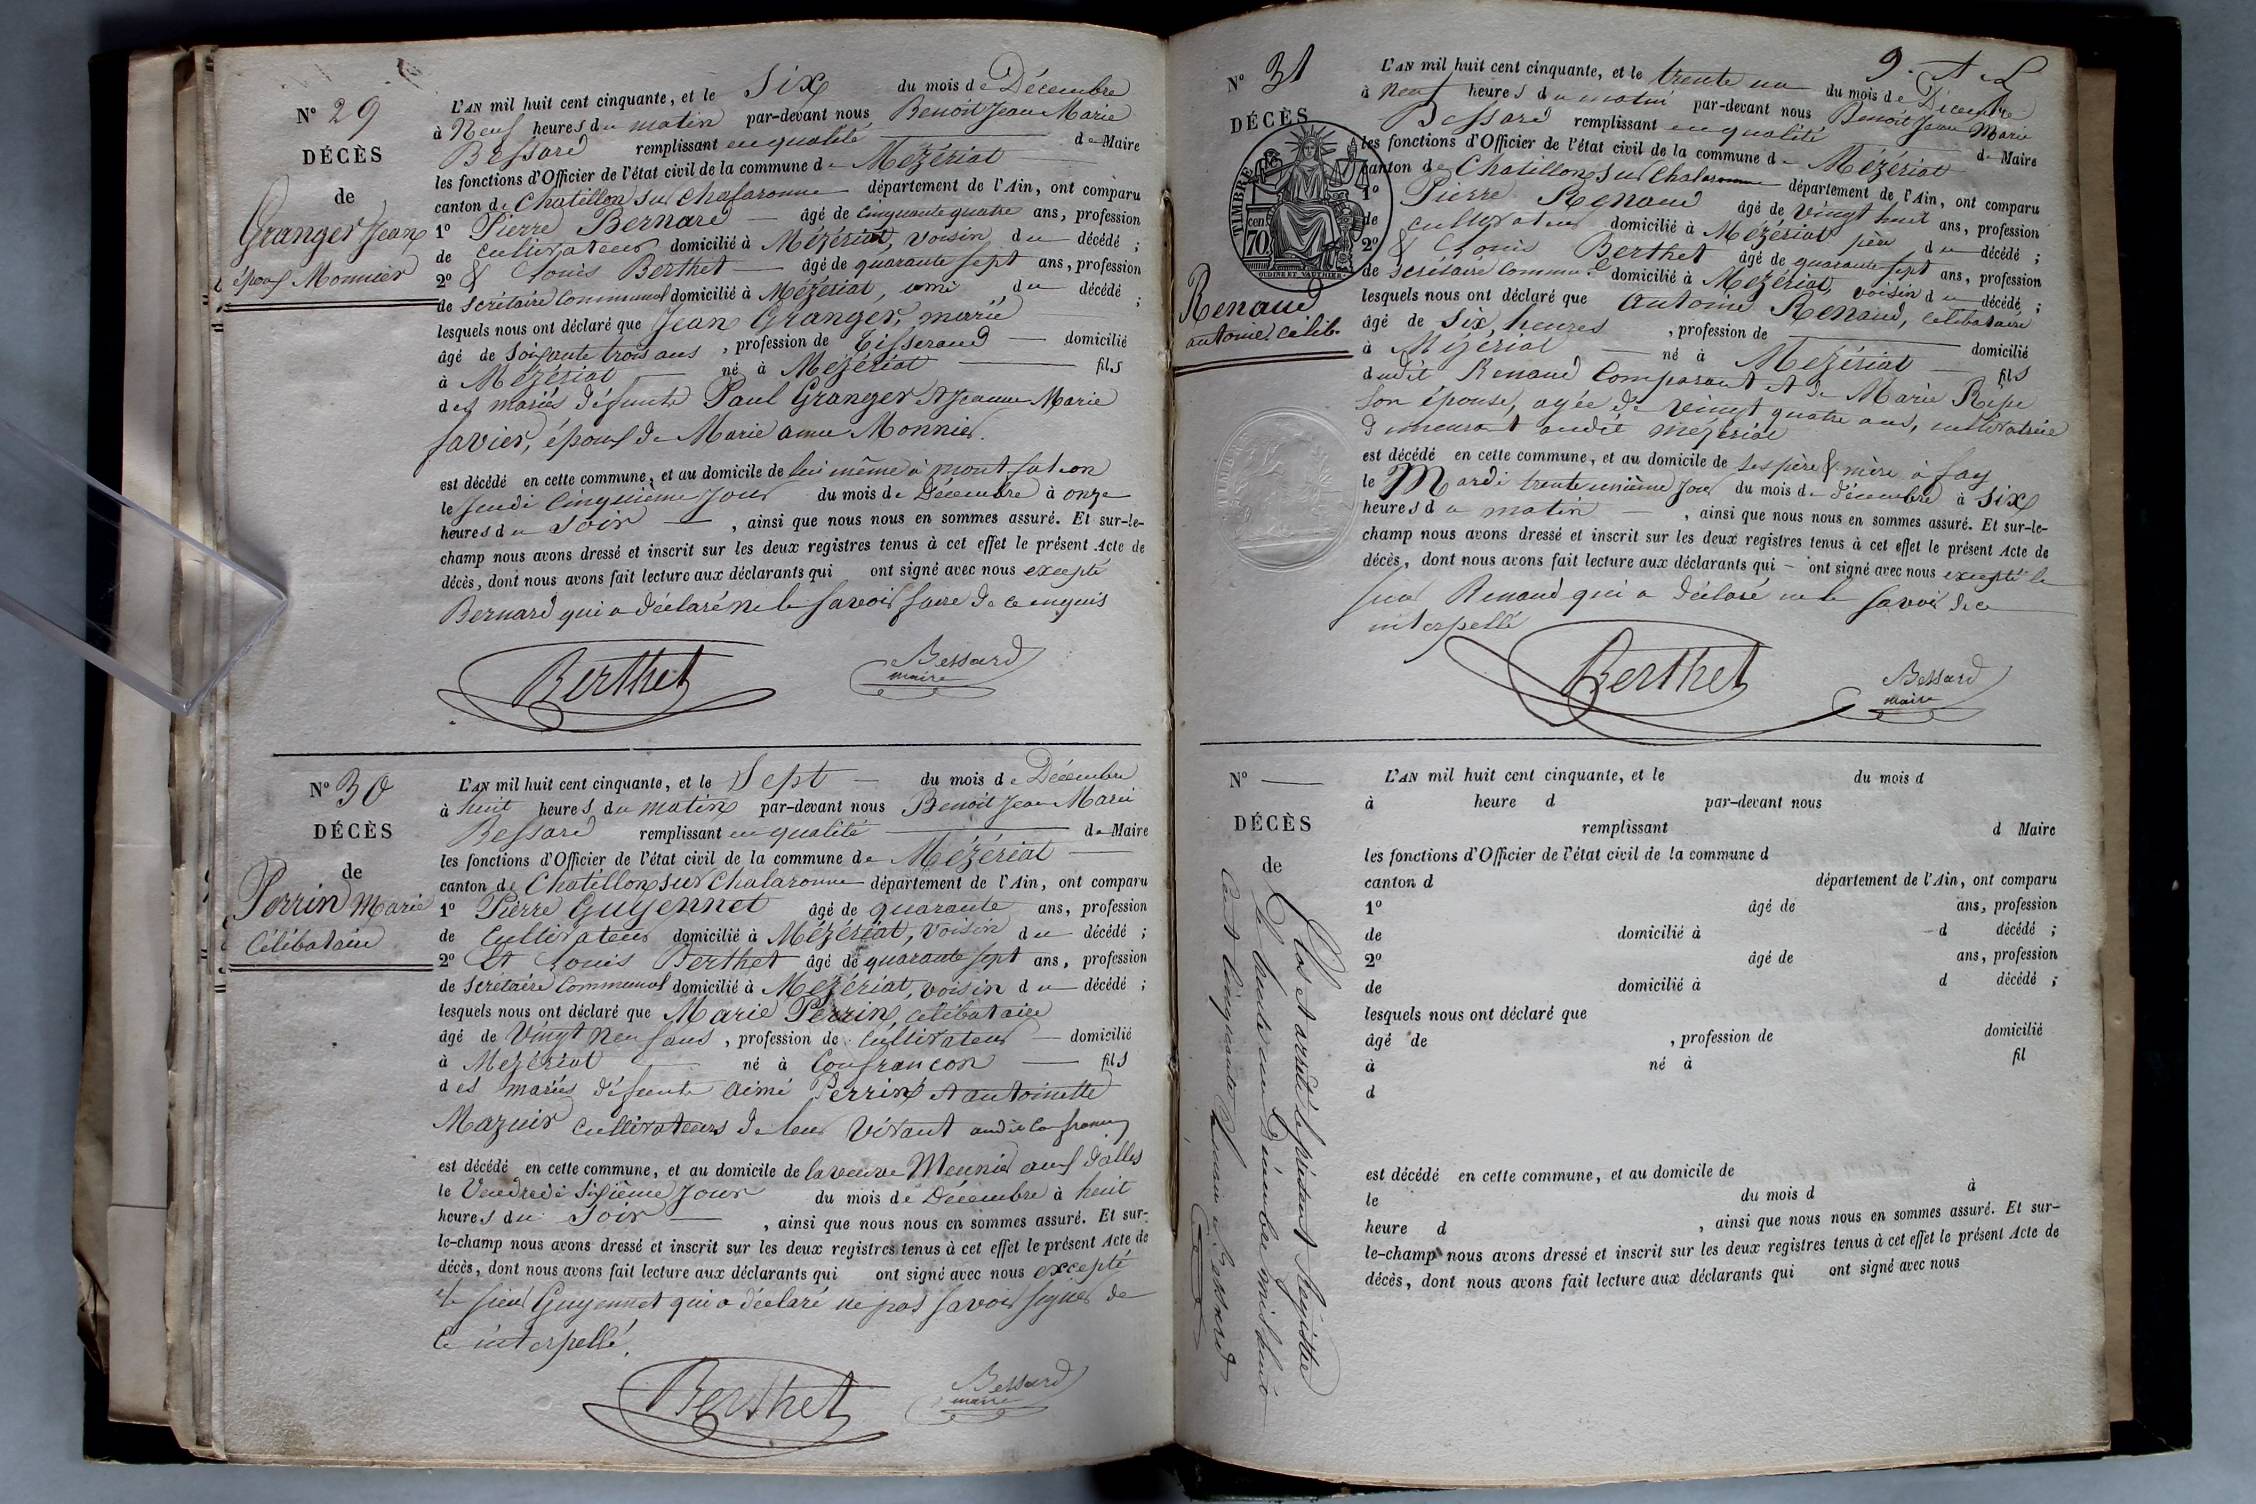 N° 29
DÉCÈS
de
Granger Jean
époux Monnier
L'AN mil huit cent cinquante, et le Six du mois de Décembre
à Neuf heures du matin par-devant nous Benoit Jean Marie
Bessard remplissant en qualité de Maire
les fonctions d'Officier de l'état civil de la commune de Mézériat
canton de Chatillon sur Chalaronne département de l'Ain, ont comparu
1° Pierre Bernard — âgé de cinquante quatre ans, profession
de cultivateur domicilié à Mézériat, voisin du décédé ;
2° & Louis Berthet — âgé de quarante sept ans, profession
de secrétaire communal domicilié à Mézériat, ami du décédé ;
lesquels nous ont déclaré que Jean Granger, marié
âgé de soixante trois ans, profession de Tisserand — domicilié
à Mézériat — né à Mézériat — fils
des mariés défunts Paul Granger et Jeanne Marie
Savier, époux de Marie anne Monnier.
est décédé en cette commune, et au domicile de lui même à mont faton
le Jeudi cinquième Jour du mois de Décembre à onze
heures du Soir —, ainsi que nous nous en sommes assuré. Et sur-le-
champ nous avons dressé et inscrit sur les deux registres tenus à cet effet le présent Acte de
décès, dont nous avons fait lecture aux déclarants qui ont signé avec nous excepté
Bernard qui a déclaré ne le savoir faire de ce enquis
Berthet
Bessard
maire
N° 30
DÉCÈS
de
Perrin Marie
Célibataire
L'AN mil huit cent cinquante, et le Sept — du mois de Décembre
à huit heures du matin par-devant nous Benoit Jean Marie
Bessard remplissant en qualité — de Maire
les fonctions d'Officier de l'état civil de la commune de Mézériat —
canton de Chatillon sur Chalaronne département de l'Ain, ont comparu
1° Pierre Guyennet âgé de quarante ans, profession
de Cultivateur domicilié à Mézériat, voisin du décédé ;
2° Et Louis Berthet âgé de quarante sept ans, profession
de secrétaire communal domicilié à Mézériat, voisin du décédé ;
lesquels nous ont déclaré que Marie Perrin, célibataire
âgé de Vingt Neuf ans, profession de Cultivateur — domicilié
à Mézériat — né à Confrancon — fils
des mariés défunts aimé Perrin et antoinette
Mazuir cultivateurs de leur vivant audit Confrancon
est décédé en cette commune, et au domicile de la veuve Meunier aux dalles
le Vendredi Sixième Jour du mois de Décembre à huit
heures du Soir —, ainsi que nous nous en sommes assuré. Et sur-
le-champ nous avons dressé et inscrit sur les deux registres tenus à cet effet le présent Acte de
décès, dont nous avons fait lecture aux déclarants qui ont signé avec nous excepté
le sieur Guyennet qui a déclaré ne pas savoir signer de
ce interpellé.
Berthet
Bessard
maire
9.
N° 31
DÉCÈS
TIMBRE
70 cent
OUDINET VAUTHIER
Renaud
antoine, célib.
L'AN mil huit cent cinquante, et le trente un du mois de Décembre
à Neuf heures du matin par-devant nous Benoit Jean Marie
Bessard remplissant en qualité de Maire
les fonctions d'Officier de l'état civil de la commune de Mézériat
canton de Chatillon sur Chalaronne département de l'Ain, ont comparu
1° Pierre Renaud âgé de vingt huit ans, profession
de cultivateur domicilié à Mézériat père du décédé ;
2° & Louis Berthet âgé de quarante sept ans, profession
de secrétaire commu.l domicilié à Mézériat, voisin du décédé ;
lesquels nous ont déclaré que antoine Renaud, célibataire
âgé de Six heures, profession de — domicilié
à Mézériat — né à Mézériat — fils
dudit Renaud comparant et de Marie Répe
son épouse, agée de vingt quatre ans, cultivatrice
demeurant audit Mézériat
est décédé en cette commune, et au domicile de ses père & mère à fay
le Mardi trente unième Jour du mois de décembre à Six
heures du matin —, ainsi que nous nous en sommes assuré. Et sur-le-
champ nous avons dressé et inscrit sur les deux registres tenus à cet effet le présent Acte de
décès, dont nous avons fait lecture aux déclarants qui — ont signé avec nous excepté le
sieur Renaud qui a déclaré ne le savoir de ce
interpellé
Berthet
Bessard
maire
N° —
DÉCÈS
de
Clos et arrêté le présent Registre
le trente un Décembre mil huit
cent cinquante Le maire Bessard
L'AN mil huit cent cinquante, et le du mois d
à heure d par-devant nous
remplissant d Maire
les fonctions d'Officier de l'état civil de la commune d
canton d département de l'Ain, ont comparu
1° âgé de ans, profession
de domicilié à d décédé ;
2° âgé de ans, profession
de domicilié à d décédé ;
lesquels nous ont déclaré que
âgé de , profession de domicilié
à né à fil
d
est décédé en cette commune, et au domicile de
le du mois d à
heure d , ainsi que nous nous en sommes assuré. Et sur-
le-champ nous avons dressé et inscrit sur les deux registres tenus à cet effet le présent Acte de
décès, dont nous avons fait lecture aux déclarants qui ont signé avec nous